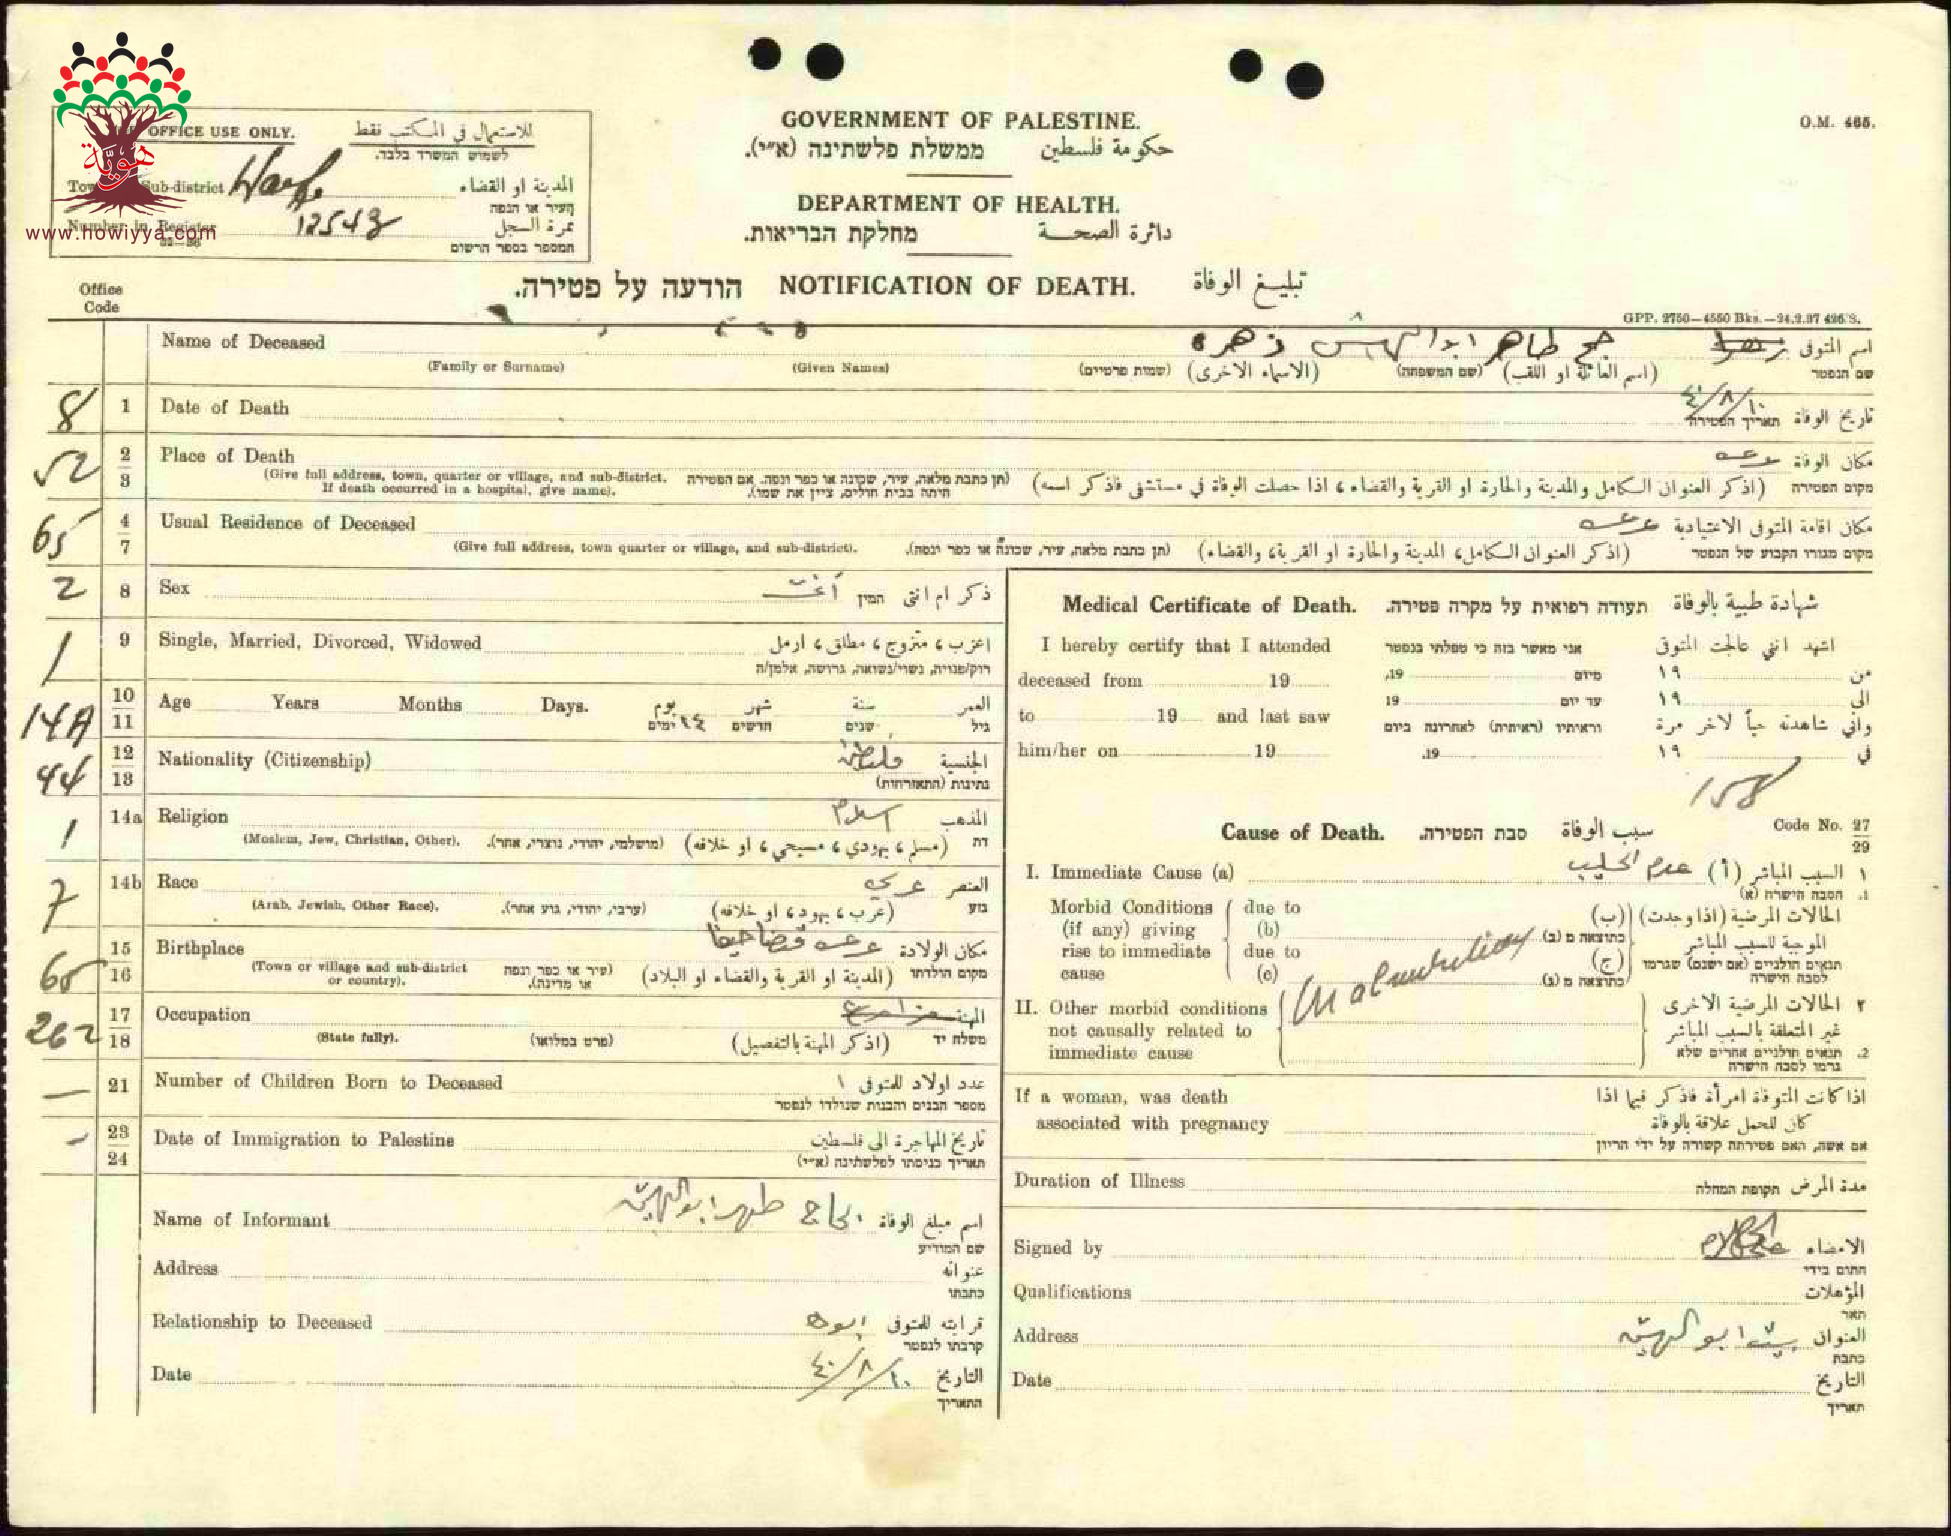 هويّة
www.howiyya.com
OFFICE USE ONLY. للاستعمال في المكتب فقط
לשמוש המשרד בלבד.
Sub-district المدينة او القضاء
העיר או הנפה
Number in Register 12543 نمرة السجل
המספר בספר הרשום
GOVERNMENT OF PALESTINE.
ממשלת פלשתינה (א״י). حكومة فلسطين
DEPARTMENT OF HEALTH.
מחלקת הבריאות. دائرة الصحة
O.M. 465.
הודעה על פטירה. NOTIFICATION OF DEATH. تبليغ الوفاة
Office
Code
GPP. 2750—4550 Bks.—24.2.37 426/S.
Name of Deceased حج طاهر ابو الهش زهره اسم المتوفى
(Family or Surname) (Given Names) (שמות פרטיים) (الاسماء الاخرى) (שם המשפחה) (اسم العائلة او اللقب) שם הנפטר
8 1 Date of Death ١٠/٨/٤٠ تاريخ الوفاة
תאריך הפטירה
52 2 3 Place of Death عرعره مكان الوفاة
(Give full address, town, quarter or village, and sub-district. If death occurred in a hospital, give name). (תן כתבת מלאה, עיר, שכונה או כפר ונפה. אם הפטירה היתה בבית חולים, ציין את שמו). (اذكر العنوان الكامل والمدينة والحارة او القرية والقضاء، اذا حصلت الوفاة في مستشفى فاذكر اسمه) מקום הפטירה
65 4 7 Usual Residence of Deceased عرعره مكان اقامة المتوفى الاعتيادية
(Give full address, town quarter or village, and sub-district). (תן כתבת מלאה, עיר, שכונה או כפר ונפה). (اذكر العنوان الكامل، المدينة والحارة او القرية، والقضاء) מקום מגורו הקבוע של הנפטר
2 8 Sex המין ذكر ام انثى
1 9 Single, Married, Divorced, Widowed اعزب، متزوج، مطلق، ارمل
רוק/פנויה, נשוי/נשואה, גרושה, אלמן/ה
14A 10 11 Age Years Months Days. يوم شهر سنة العمر
١٤ ימים חדשים שנים גיל
44 12 13 Nationality (Citizenship) الجنسية
נתינות (התאזרחות)
1 14a Religion اسلام المذهب
(Moslem, Jew, Christian, Other). (מושלמי, יהודי, נוצרי, אחר). (مسلم، يهودي، مسيحي، او خلافه) דת
7 14b Race عربي العنصر
(Arab, Jewish, Other Race). (ערבי, יהודי, גזע אחר). (عرب، يهود، او خلافه) גזע
65 15 16 Birthplace عرعره قضا حيفا مكان الولادة
(Town or village and sub-district or country). (עיר או כפר ונפה או מדינה). (المدينة او القرية والقضاء او البلاد) מקום הולדתו
262 17 18 Occupation المهنة
(State fully). (פרט במלואו) (اذكر المهنة بالتفصيل) משלח יד
— 21 Number of Children Born to Deceased عدد اولاد للمتوفى
מספר הבנים והבנות שנולדו לנפטר
— 23 24 Date of Immigration to Palestine تاريخ المهاجرة الى فلسطين
תאריך כניסתו לפלשתינה (א״י)
Name of Informant الحاج طاهر ابو الهش اسم مبلغ الوفاة
שם המודיע
Address عنوانه
כתבתו
Relationship to Deceased ابوه قرابته للمتوفى
קרבתו לנפטר
Date ١٠/٨/٤٠ التاريخ
התאריך
Medical Certificate of Death. תעודה רפואית על מקרה פטירה. شهادة طبية بالوفاة
I hereby certify that I attended אני מאשר בזה כי טפלתי בנפטר اشهد انني عالجت المتوفى
deceased from 19 19, מיום من ١٩
to 19 and last saw 19 עד יום الى ١٩
וראיתיו (ראיתיה) לאחרונה ביום واني شاهدته حياً لاخر مرة
him/her on 19 19. في ١٩
158
Cause of Death. סבת הפטירה. سبب الوفاة Code No. 27 29
I. Immediate Cause (a) عدم الحليب (أ) السبب المباشر ١
1. הסבה הישרה (א)
Morbid Conditions (if any) giving rise to immediate cause
due to (b) due to (c)
(ب) الحالات المرضية (اذا وجدت)
כתוצאה מ (ב) الموجبة للسبب المباشر
(ج) תנאים חולניים (אם ישנם) שגרמו לסבה הישרה
כתוצאה מ (ג)
II. Other morbid conditions not causally related to immediate cause
٢ الحالات المرضية الاخرى غير المتعلقة بالسبب المباشر
2. תנאים חולניים אחרים שלא גרמו לסבה הישרה
If a woman, was death associated with pregnancy
اذا كانت المتوفاة امرأة فاذكر فيما اذا كان للحمل علاقة بالوفاة
אם אשה, האם פטירתה קשורה על ידי הריון
Duration of Illness תקופת המחלה مدة المرض
Signed by الامضاء
חתום בידי
Qualifications المؤهلات
תאר
Address بيت ابو الهش العنوان
כתבת
Date التاريخ
תאריך